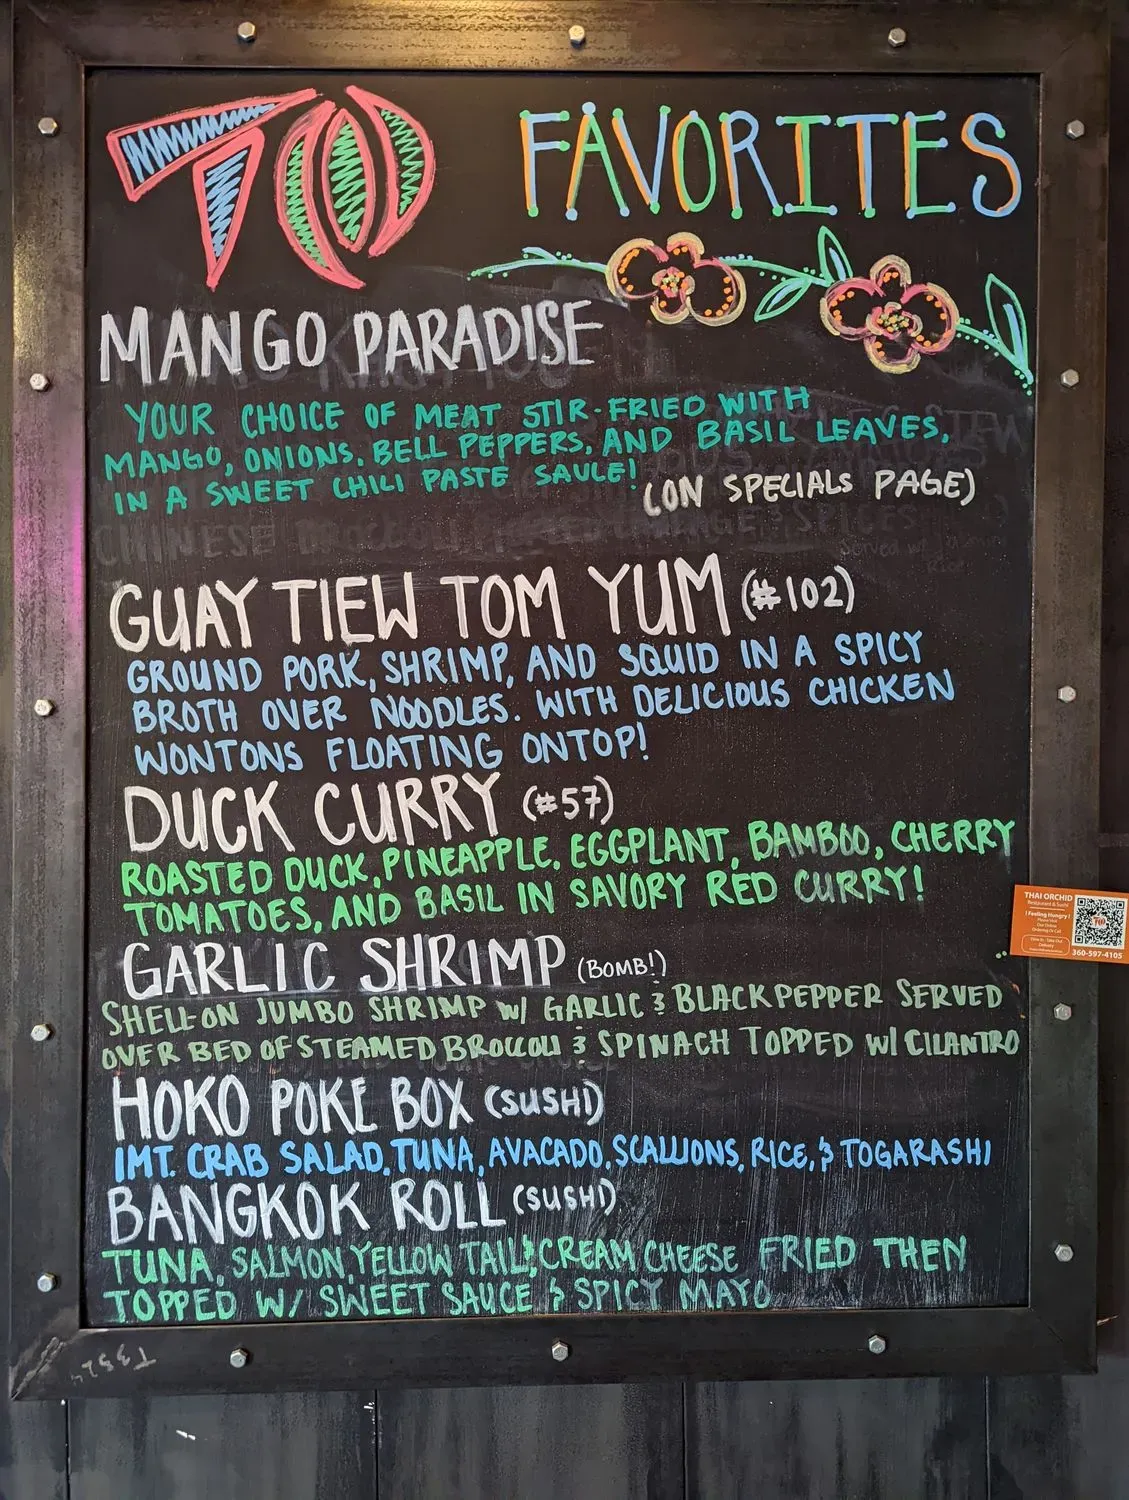 TO FAVORITES
MANGO PARADISE
YOUR CHOICE OF MEAT STIR-FRIED WITH
MANGO, ONIONS, BELL PEPPERS, AND BASIL LEAVES,
IN A SWEET CHILI PASTE SAUCE!
(ON SPECIALS PAGE)
CHINESE BROCCOLI
GUAY TIEW TOM YUM (#102)
GROUND PORK, SHRIMP, AND SQUID IN A SPICY
BROTH OVER NOODLES. WITH DELICIOUS CHICKEN
WONTONS FLOATING ONTOP!
DUCK CURRY (#57)
ROASTED DUCK, PINEAPPLE, EGGPLANT, BAMBOO, CHERRY
TOMATOES, AND BASIL IN SAVORY RED CURRY!
THAI ORCHID
Restaurant & Sushi
Feeling Hungry!
360-597-4105
GARLIC SHRIMP (BOMB!)
SHELL-ON JUMBO SHRIMP W/ GARLIC & BLACKPEPPER SERVED
OVER BED OF STEAMED BROCCOLI & SPINACH TOPPED W/ CILANTRO
HOKO POKE BOX (SUSHI)
IMT. CRAB SALAD, TUNA, AVACADO, SCALLIONS, RICE, & TOGARASHI
BANGKOK ROLL (SUSHI)
TUNA, SALMON, YELLOW TAIL, & CREAM CHEESE FRIED THEN
TOPPED W/ SWEET SAUCE & SPICY MAYO